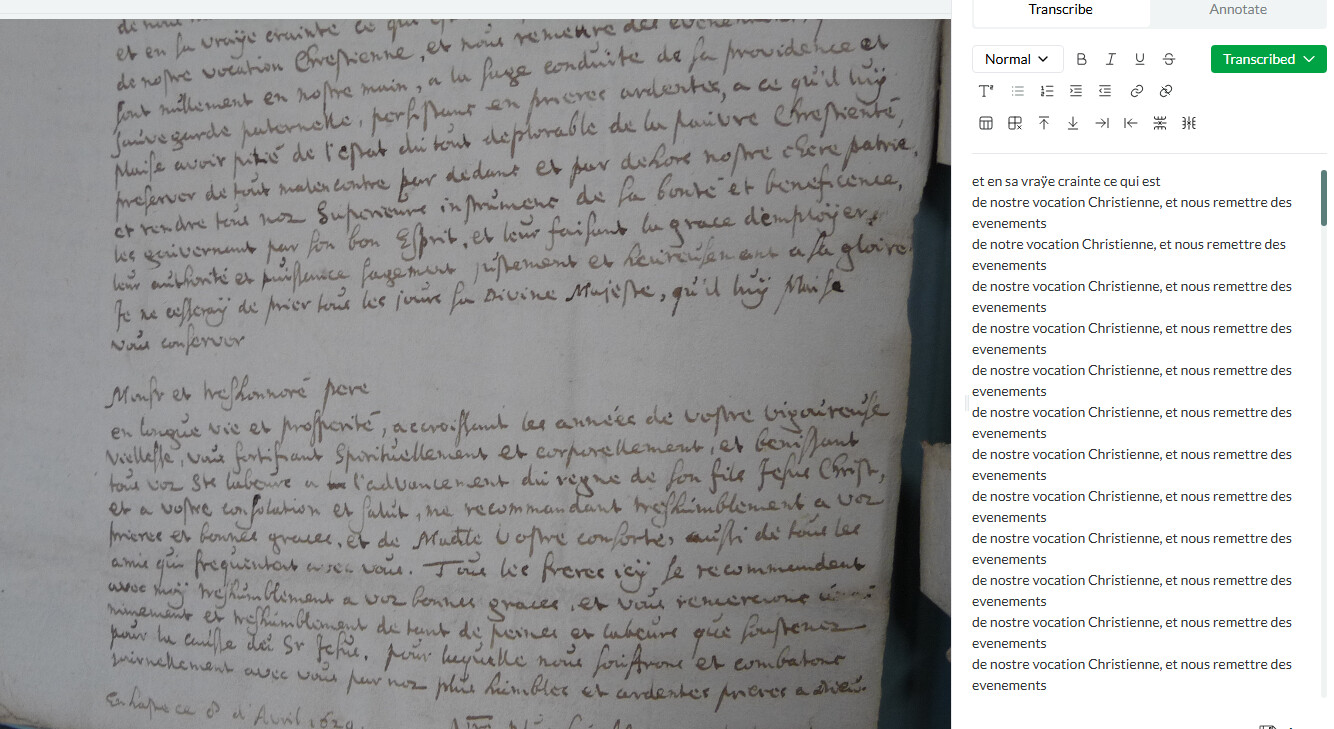 Transcribe
Annotate
Normal
B
I
U
S
Transcribed
et en sa vraÿe crainte ce qui est
de nostre vocation Chrestienne, et nous remettre des evenemens
sont nullement en nostre main, a la sage conduite de sa providence et
sauvegarde paternelle, persistans en prieres ardentes, a ce qu'il luÿ
plaise avoir pitié de l'estat du tout deplorable de la pauvre Chrestienté,
preserver de tout malencontre par dedans et par dehors nostre chere patrie,
et rendre tous noz Superieurs instrumens de sa bonté et beneficence,
les gouvernant par son bon Esprit, et leur faisant la grace d'emploÿer
leur authorité et puissance sagement justement et heureusement a sa gloire
Je ne cesseraÿ de prier tous les jours sa Divine Majeste, qu'il luÿ plaise
vous conserver
Monsr et treshonnoré pere
en longue vie et prosperité, accroissant les années de vostre vigoureuse
viellesse, vous fortifiant Spirituellement et corporellement, et benissant
tous voz Sts labeurs a l'advancement du regne de son fils Jesus Christ,
et a vostre consolation et salut, me recommandant treshumblement a voz
prieres et bonnes graces, et de Madle vostre consorte, aussi de tous les
amis qui frequentent avec vous. Tous les freres icÿ se recommendent
avec moÿ treshumblement a voz bonnes graces, et vous remercions
et treshumblement de tant de peines et labeurs que soustenez
pour la cause du Sr Jesus, pour laquelle nous souffrons et combatons
journellement avec vous par noz plus humbles et ardentes prieres a Dieu.
ce 8 d'Avril 1629.
et en sa vraÿe crainte ce qui est
de nostre vocation Christienne, et nous remettre des
evenements
de notre vocation Christienne, et nous remettre des
evenements
de nostre vocation Christienne, et nous remettre des
evenements
de nostre vocation Christienne, et nous remettre des
evenements
de nostre vocation Christienne, et nous remettre des
evenements
de nostre vocation Christienne, et nous remettre des
evenements
de nostre vocation Christienne, et nous remettre des
evenements
de nostre vocation Christienne, et nous remettre des
evenements
de nostre vocation Christienne, et nous remettre des
evenements
de nostre vocation Christienne, et nous remettre des
evenements
de nostre vocation Christienne, et nous remettre des
evenements
de nostre vocation Christienne, et nous remettre des
evenements